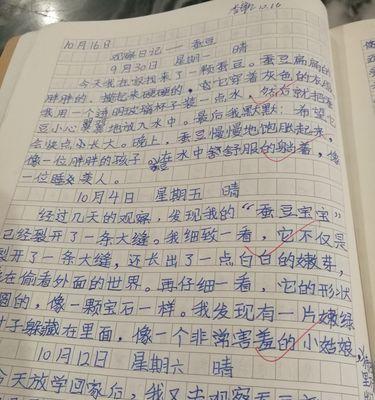 12.16
10月16日
观察日记——蚕豆
9月30日 星期 晴
今天我在家找来了一颗蚕豆。蚕豆扁扁的
胖胖的,摸起来硬硬的,它穿着灰色的衣服
我用一个透明玻璃杯子装一点水,然后就把蚕
豆小心翼翼地放入水中。最后我默默:希望它
会快点小长大。晚上,蚕豆慢慢地饱胀起来,
像一位胖胖的孩子。在水中舒舒服的躺着,像
一位睡美人。
10月4日 星期五 晴
经过几天的观察,发现我的“蚕豆宝宝”
已经裂开了一条大缝。我细致一看,它不仅是
裂开了一条大缝,还长出了一点白白的嫩芽,
在偷看外面的世界。再仔细一看,它的形状
圆的,像一颗宝石一样。我发现有一片嫩绿
叶子躲藏在里面,像一个非常害羞的小姑娘,
10月12日 星期六 晴
今天放学回家后,我又去观察蚕豆